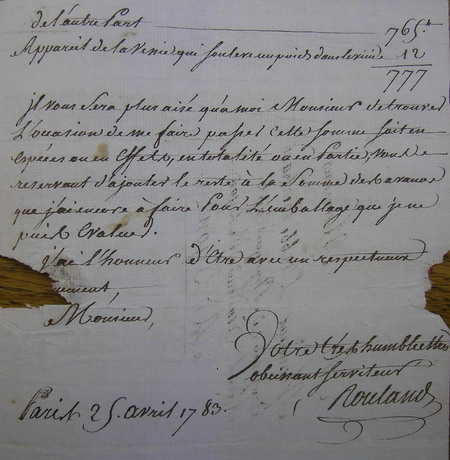 de l'autre Part 765.#
Appareil de la Vessie qui souleve un poids dans le vuide 12
777
jl vous sera plus aisé qu'a moi Monsieur de trouver
l'occasion de me faire passer cette somme soit en
especes ou en Effets, en totalité ou en Partie, vous
reservant d'ajouter le reste à la somme des avances
que j'ai encore à faire Pour l'emballage que je ne
puis Evaluer.
j'ai l'honneur d'Etre avec un respectueux
Monsieur,
Votre très humble et très
obeissant serviteur
Rouland
Paris 25. avril 1783.